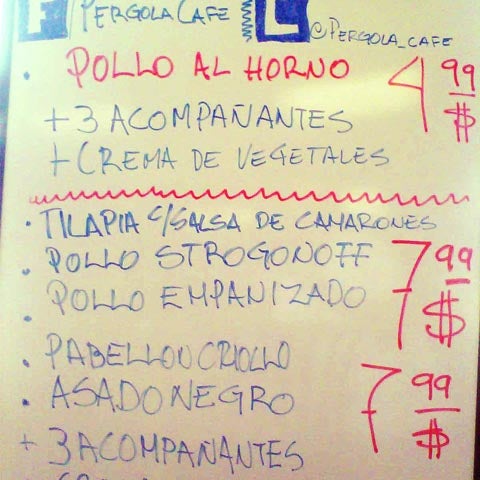 F /PERGOLACAFE L @PERGOLA_CAFE
• POLLO AL HORNO 4 99 $
+ 3 ACOMPAÑANTES
+ CREMA DE VEGETALES
• TILAPIA C/SALSA DE CAMARONES
• POLLO STROGONOFF 7 99 $
• POLLO EMPANIZADO
• PABELLOU CRIOLLO
• ASADO NEGRO 7 99 $
+ 3 ACOMPAÑANTES